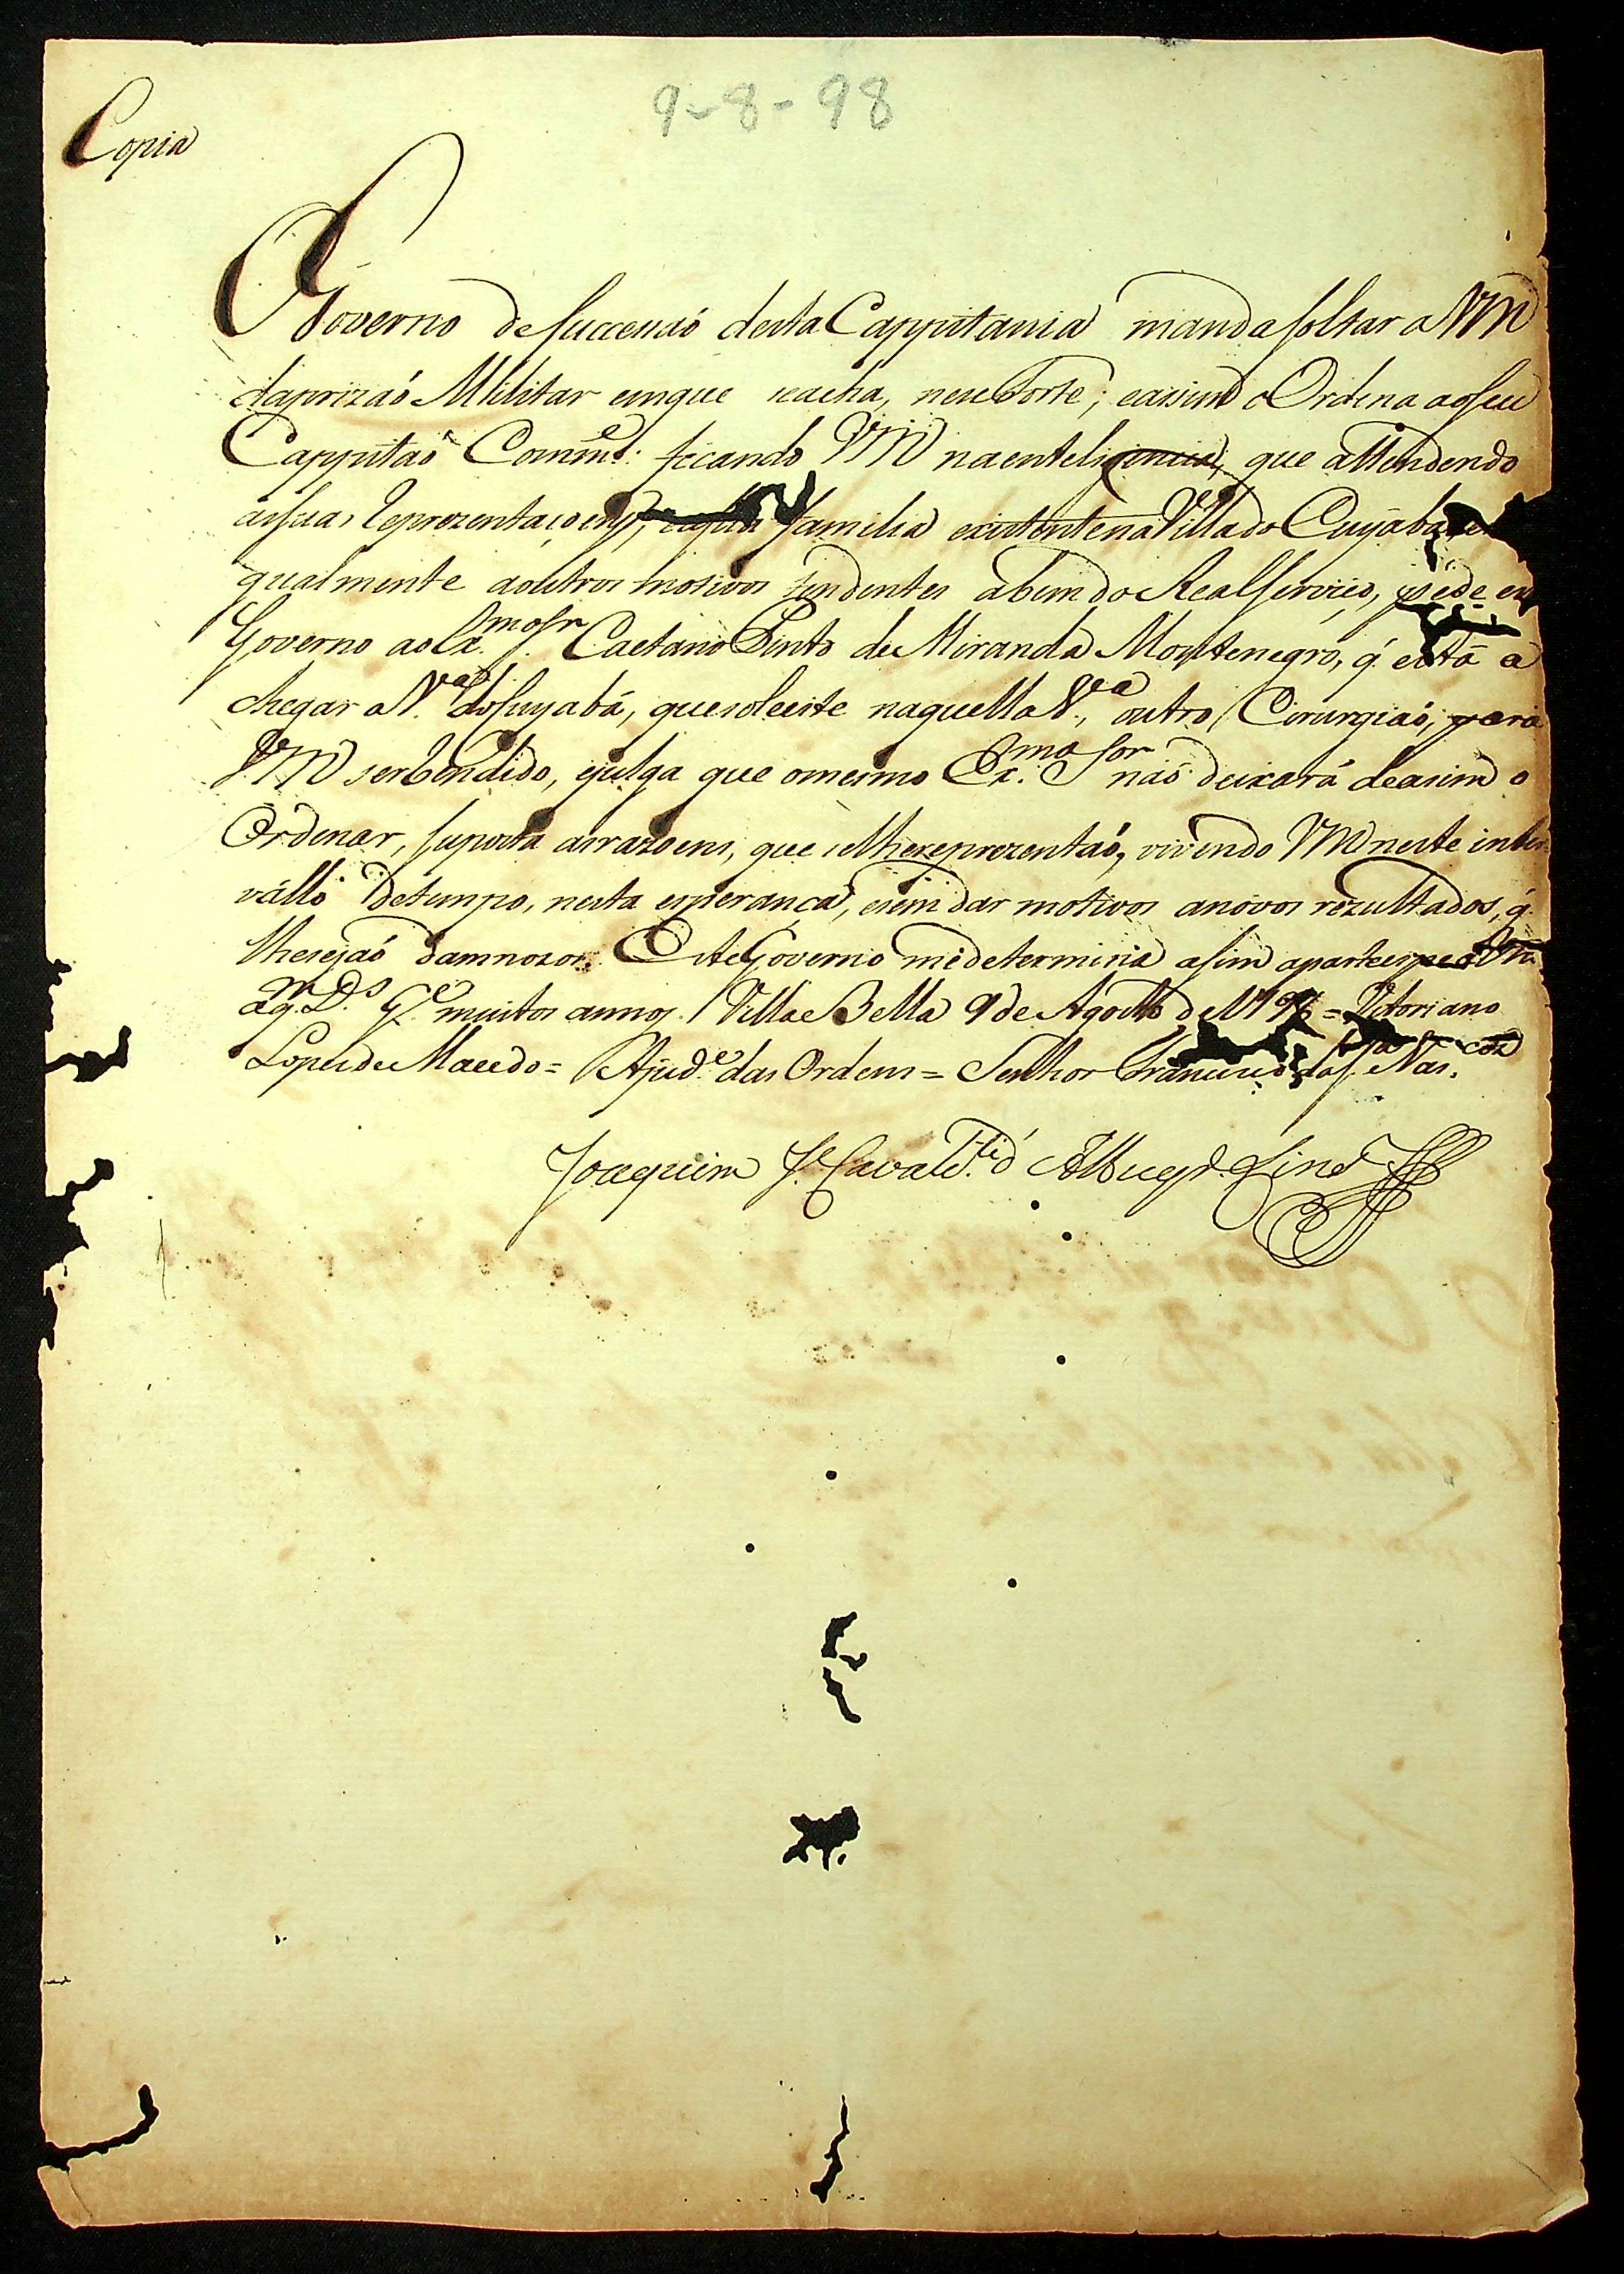 9-8-98
Copia
O Governo de Successaó desta Cappitania manda soltar a VM
daprizaó Militar emque seacha, nesse Forte; eassim o Ordena aoseu
Cappitaõ Comm.e: ficando VM naenteligencia, que attendendo
assuas Reprezentaçoens, easua familia existente na Villa do Cuyabá, e
qualmente aoutros motivos tendentes abem do Real serviço, pede este
Governo ao Ex.mo Sr. Caetano Pinto de Miranda Montenegro, q. está a
chegar a V.a do Cuyabá, que soleeite naquella V.a, outro Cirurgiaó, para
VM ser rendido, ejulga que omesmo Ex.mo Sor naó deixará de asim o
Ordenar, suposta as razoens, que selhe reprezentaó, vivendo VM neste inter-
vállo de tempo, nesta esperança, esem dar motivos anovos rezultados, q.
lhesejaó damnozos. Este Governo me determina asim aparteecipe a VM
aq.m D.s G.e muitos annos. Villa Bella 9 de Agosto de 1796 = Vitoriano
Lopes de Macedo = Ajud.e das Ordens = Senhor Francisco
Joaquim J.e Cavalc.ti d' Albuqq.e Lins